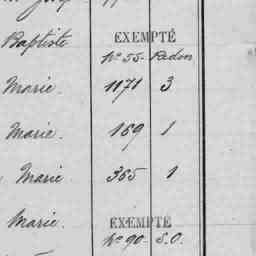 Baptiste EXEMPTÉ
N° 55. Redon
Marie. 1171 3
Marie. 169 1
Marie 365 1
Marie. EXEMPTÉ
N° 90. S.O.